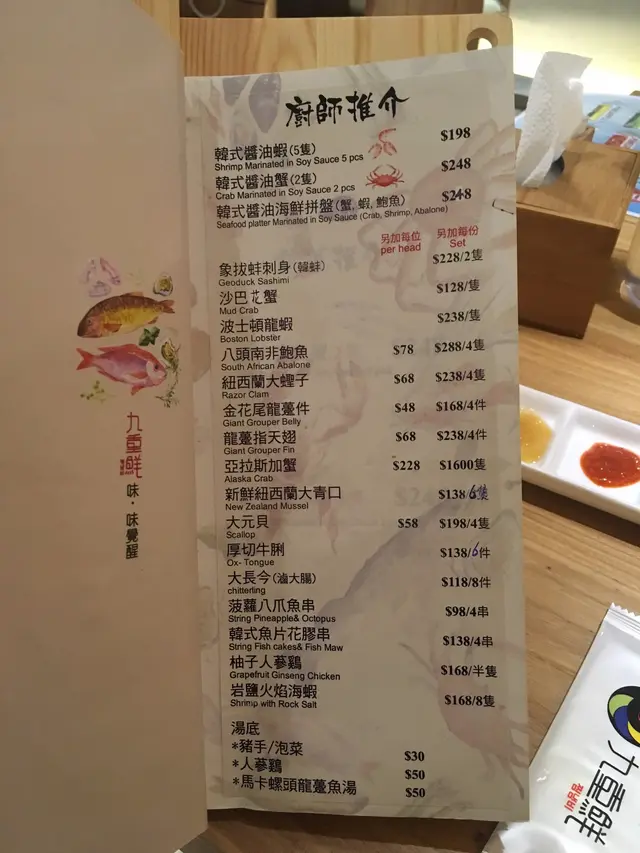 廚師推介
韓式醬油蝦(5隻) $198
Shrimp Marinated in Soy Sauce 5 pcs
韓式醬油蟹(2隻) $248
Crab Marinated in Soy Sauce 2 pcs
韓式醬油海鮮拼盤(蟹, 蝦, 鮑魚) $248
Seafood platter Marinated in Soy Sauce (Crab, Shrimp, Abalone)
另加每位 另加每份
per head Set
象拔蚌刺身(韓蚌) $228/2隻
Geoduck Sashimi
沙巴花蟹 $128/隻
Mud Crab
波士頓龍蝦 $238/隻
Boston Lobster
八頭南非鮑魚 $78 $288/4隻
South African Abalone
紐西蘭大蟶子 $68 $238/4隻
Razor Clam
金花尾龍躉件 $48 $168/4件
Giant Grouper Belly
龍躉指天翅 $68 $238/4件
Giant Grouper Fin
亞拉斯加蟹 $228 $1600隻
Alaska Crab
新鮮紐西蘭大青口 $138/6隻
New Zealand Mussel
大元貝 $58 $198/4隻
Scallop
厚切牛脷 $138/6件
Ox- Tongue
大長今(滷大腸) $118/8件
chitterling
菠蘿八爪魚串 $98/4串
String Pineapple& Octopus
韓式魚片花膠串 $138/4串
String Fish cakes& Fish Maw
柚子人蔘鷄 $168/半隻
Grapefruit Ginseng Chicken
岩鹽火焰海蝦 $168/8隻
Shrimp with Rock Salt
湯底
*豬手/泡菜 $30
*人蔘鷄 $50
*馬卡螺頭龍躉魚湯 $50
九重鮮
味·味覺醒
九重鮮